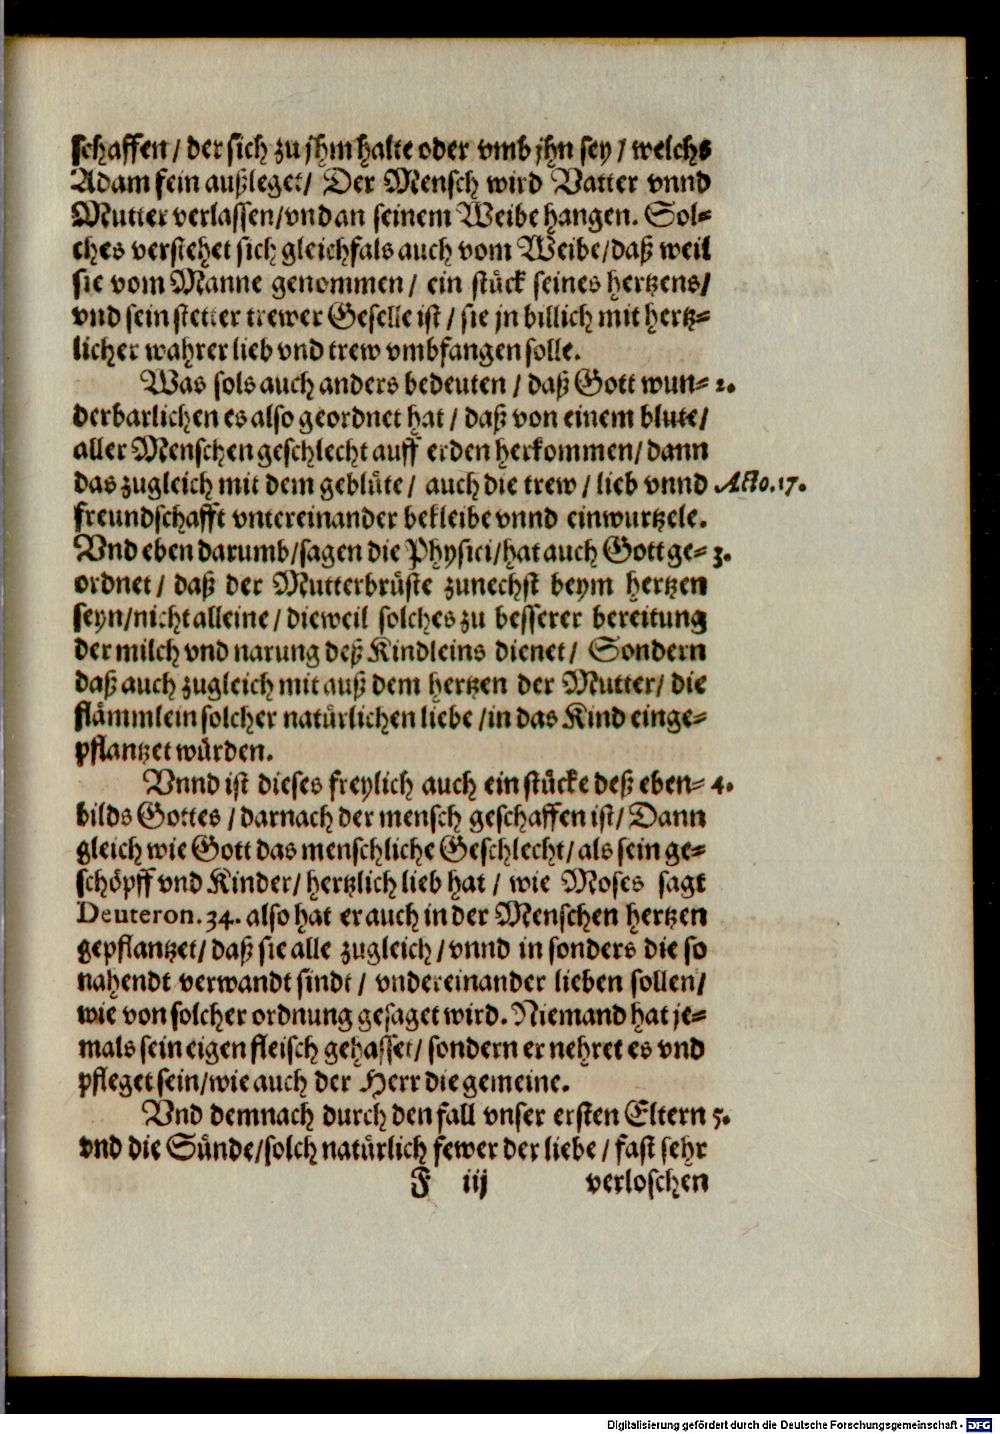 schaffen / der sich zu jhm halte oder vmb jhn sey / welchs
Adam fein außleget / Der Mensch wird Vatter vnnd
Mutter verlassen / vnd an seinem Weibe hangen. Sol-
ches verstehet sich gleichfals auch vom Weibe / daß weil
sie vom Manne genommen / ein stück seines hertzens /
vnd sein stetter trewer Geselle ist / sie jn billich mit hertz-
licher wahrer lieb vnd trew vmbfangen solle.
Was sols auch anders bedeuten / daß Gott wun- 2.
derbarlichen es also geordnet hat / daß von einem blute /
aller Menschen geschlecht auff erden herkommen / dann
das zugleich mit dem geblüte / auch die trew / lieb vnnd Acto. 17.
freundschafft vntereinander bekleibe vnnd einwurtzele.
Vnd eben darumb / sagen die Physici / hat auch Gott ge- 3.
ordnet / daß der Mutterbrüste zunechst beym hertzen
seyn / nicht alleine / dieweil solches zu besserer bereitung
der milch vnd narung deß Kindleins dienet / Sondern
daß auch zugleich mit auß dem hertzen der Mutter / die
flämmlein solcher natürlichen liebe / in das Kind einge-
pflantzet würden.
Vnnd ist dieses freylich auch ein stücke deß eben- 4.
bilds Gottes / darnach der mensch geschaffen ist / Dann
gleich wie Gott das menschliche Geschlecht / als sein ge-
schöpff vnd Kinder / hertzlich lieb hat / wie Moses sagt
Deuteron. 34. also hat er auch in der Menschen hertzen
gepflantzet / daß sie alle zugleich / vnnd in sonders die so
nahendt verwandt sindt / vndereinander lieben sollen /
wie von solcher ordnung gesaget wird. Niemand hat je-
mals sein eigen fleisch gehasset / sondern er nehret es vnd
pfleget sein / wie auch der Herr die gemeine.
Vnd demnach durch den fall vnser ersten Eltern 5.
vnd die Sünde / solch natürlich fewer der liebe / fast sehr
F iij verloschen
Digitalisierung gefördert durch die Deutsche Forschungsgemeinschaft - DFG